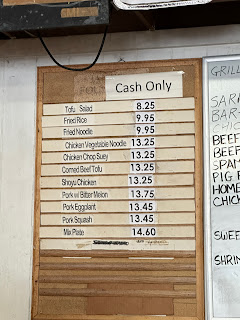 Cash Only
Tofu Salad 8.25
Fried Rice 9.95
Fried Noodle 9.95
Chicken Vegetable Noodle 13.25
Chicken Chop Suey 13.25
Corned Beef Tofu 13.25
Shoyu Chicken 13.25
Pork w/ Bitter Melon 13.75
Pork Eggplant 13.45
Pork Squash 13.45
Mix Plate 14.60
GRILL
SAR
BAR
CHIC
BEEF
BEEF
SPAM
PIG F
HOME
CHIC
SWEE
SHRIM